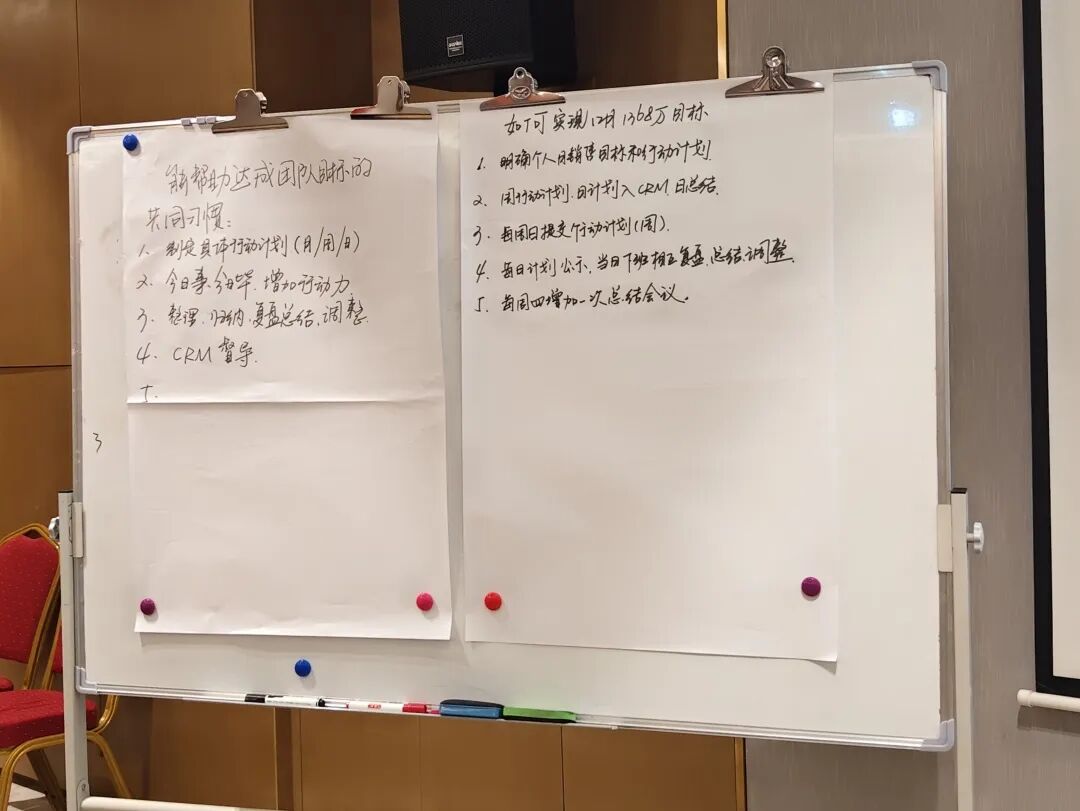 能帮助达成团队目标的
共同习惯:
1. 制定具体行动计划(月/周/日)
2. 今日事今日毕, 增加行动力
3. 整理、归纳、复盘总结、调整.
4. CRM 督导.
5.
3
如何实现12月1368万目标
1. 明确个人月销售目标和行动计划.
2. 周行动计划、日计划入CRM, 日总结.
3. 每周日提交行动计划(周).
4. 每日计划公示、当日下班相互复盘、总结、调整.
5. 每周四增加一次总结会议。